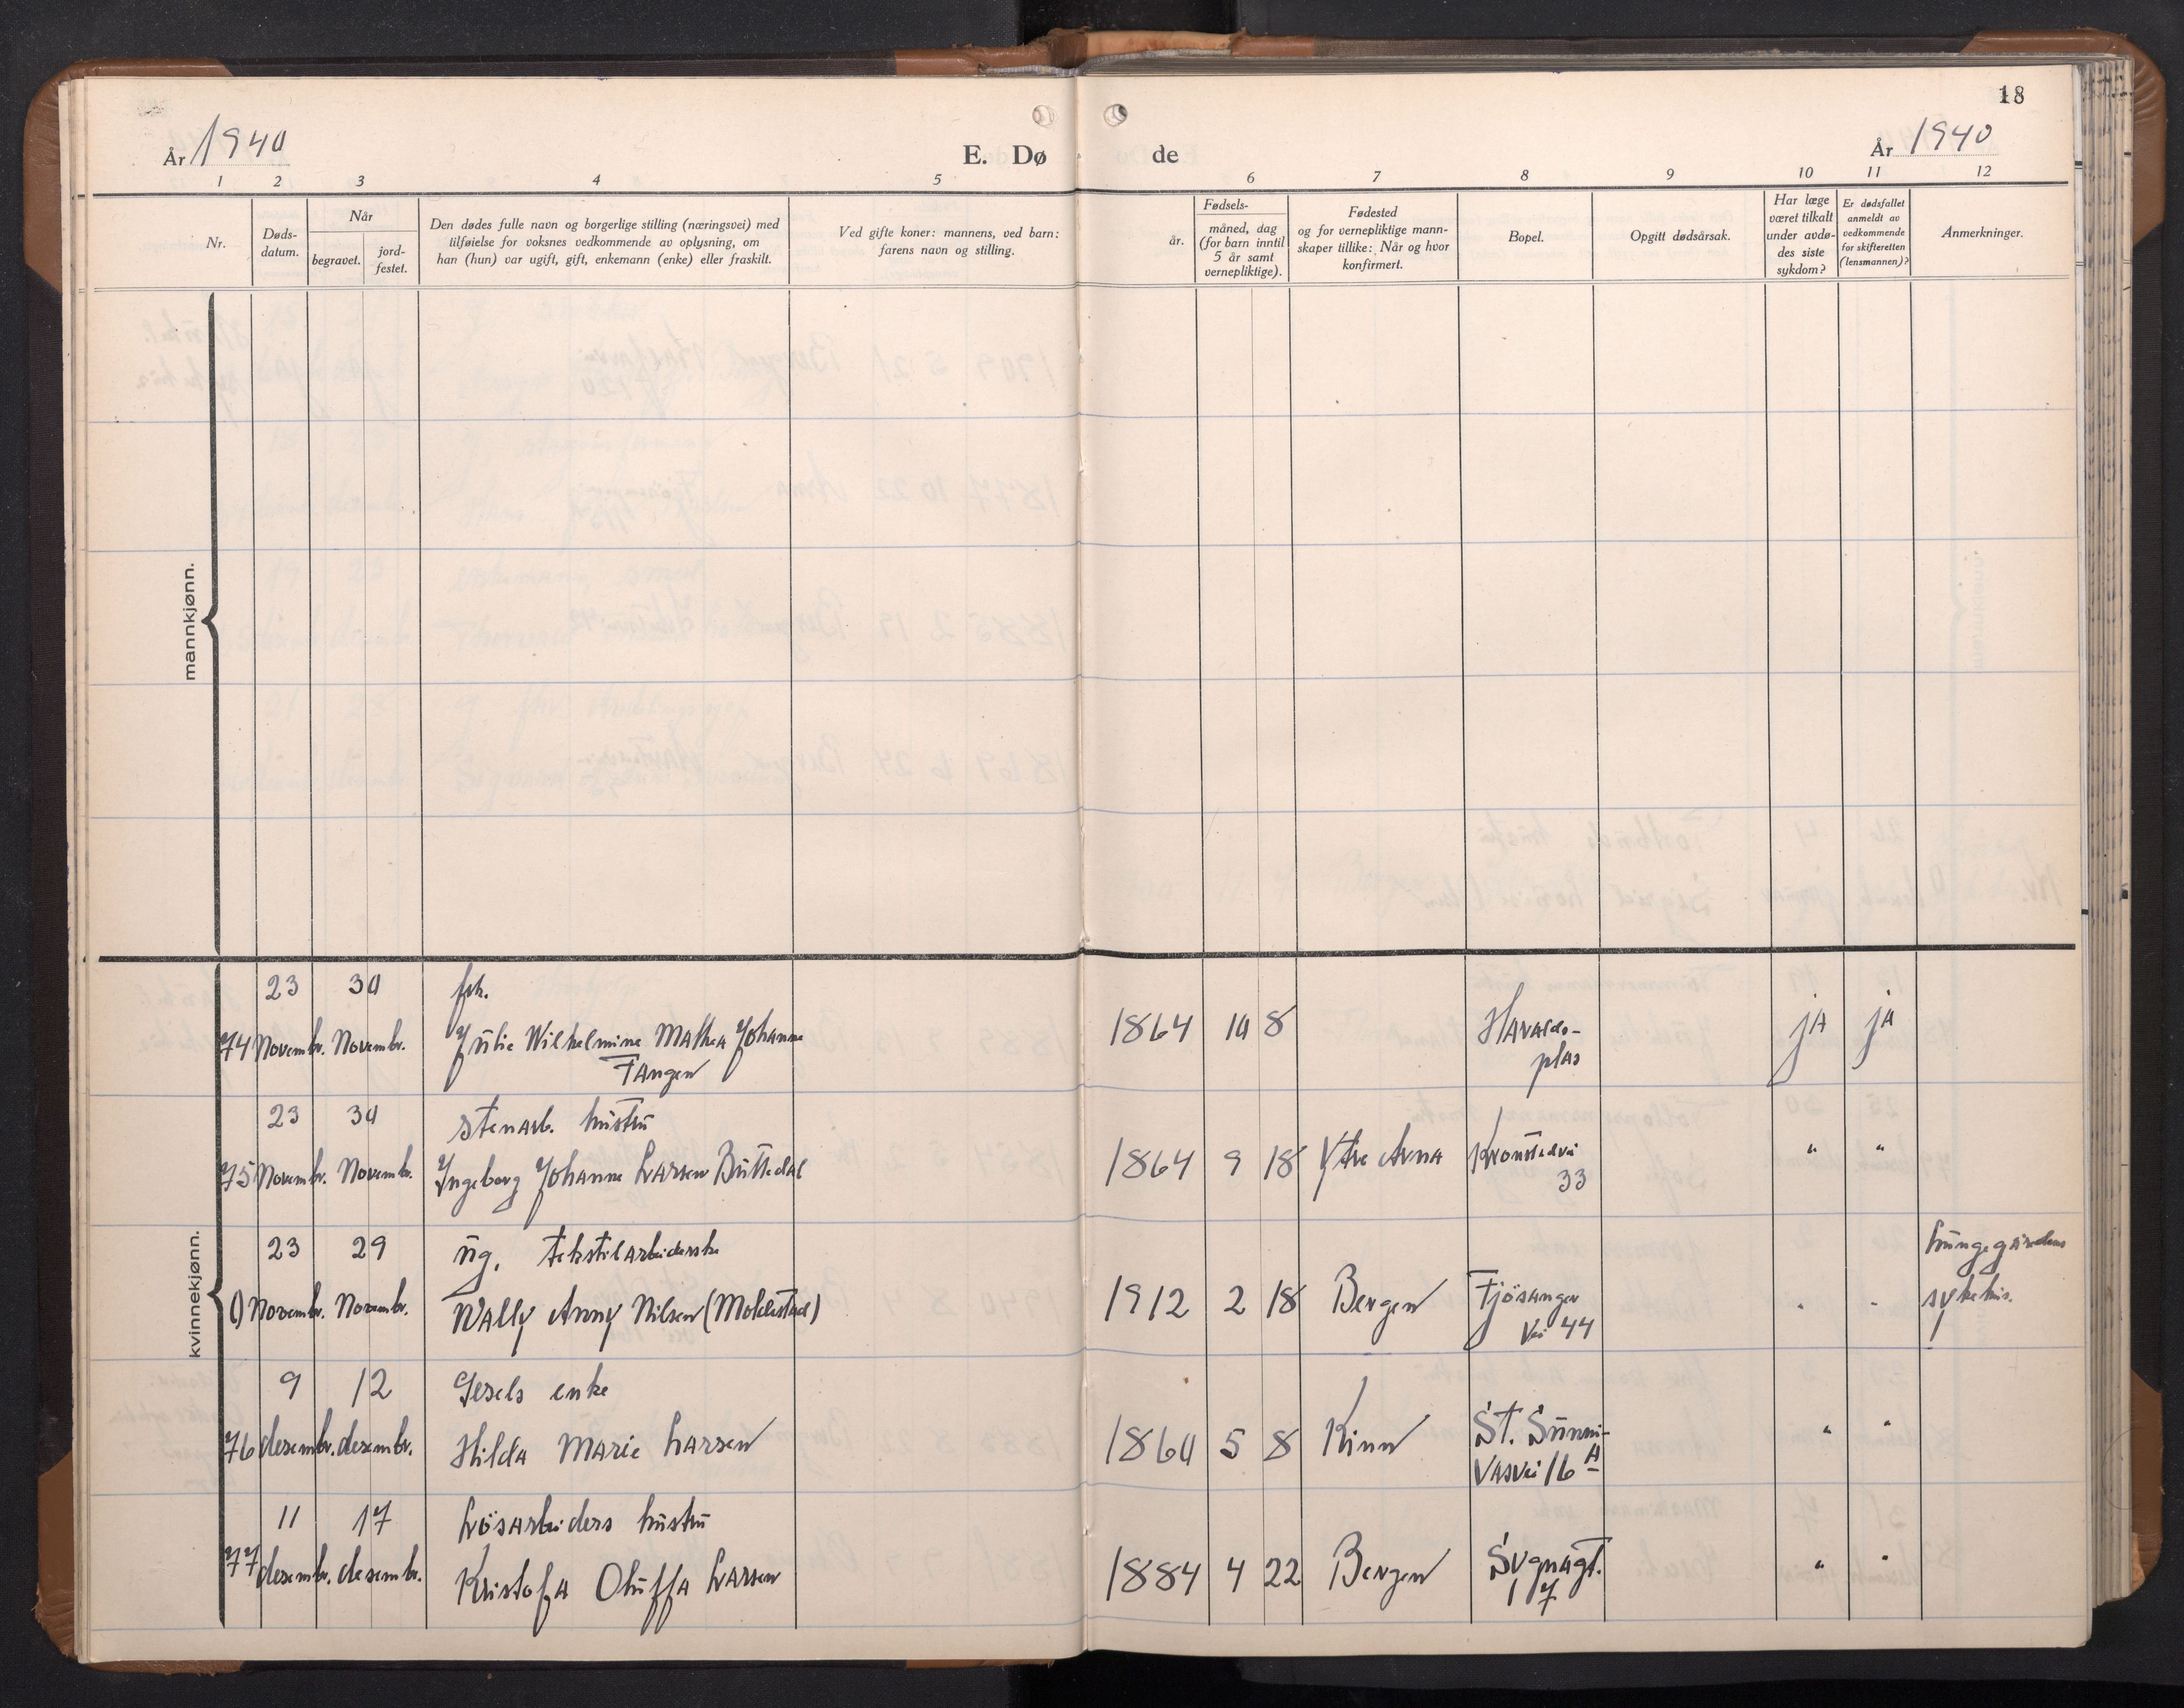 18
År 1940
E. Dø de
År 1940
1 2 3 4 5 6 7 8 9 10 11 12
Nr.
Døds-
datum.
Når
begravet.
jord-
festet.
Den dødes fulle navn og borgerlige stilling (næringsvei) med
tilføielse for voksnes vedkommende av oplysning, om
han (hun) var ugift, gift, enkemann (enke) eller fraskilt.
Ved gifte koner: mannens, ved barn:
farens navn og stilling.
Fødsels-
år.
måned, dag
(for barn inntil
5 år samt
vernepliktige).
Fødested
og for vernepliktige mann-
skaper tillike: Når og hvor
konfirmert.
Bopel.
Opgitt dødsårsak.
Har læge
været tilkalt
under avdø-
des siste
sykdom?
Er dødsfallet
anmeldt av
vedkommende
for skifteretten
(lensmannen)?
Anmerkninger.
mannkjønn.
kvinnekjønn.
23 30 frk.
74 Novembr. Novembr. Julie Wilhelmine Mathea Johanne
Fangen
1864 10 8 Haralds-
plas
ja ja
23 30 stenarb. hustru
75 Novembr. Novembr. Ingeborg Johanne Larsen Buttedal
1864 9 18 Ytre Arna Kronstadvei
33
" "
23 29 ug. tekstilarbeiderske
0) Novembr. Novembr. Wally Anny Nilsen (Moldestad)
1912 2 18 Bergen Fjösanger
vei 44
" "
Lungegårdens
sykehus.
9 12 Gesels enke
76 desembr. desembr. Hilda Marie Larsen
1860 5 8 Kinn St. Sunni-
vasvei 16 A
" "
11 17 Lösarbeiders hustru
77 desembr. desembr. Kristofa Oluffa Larsen
1884 4 22 Bergen Sygnagt.
17
" "